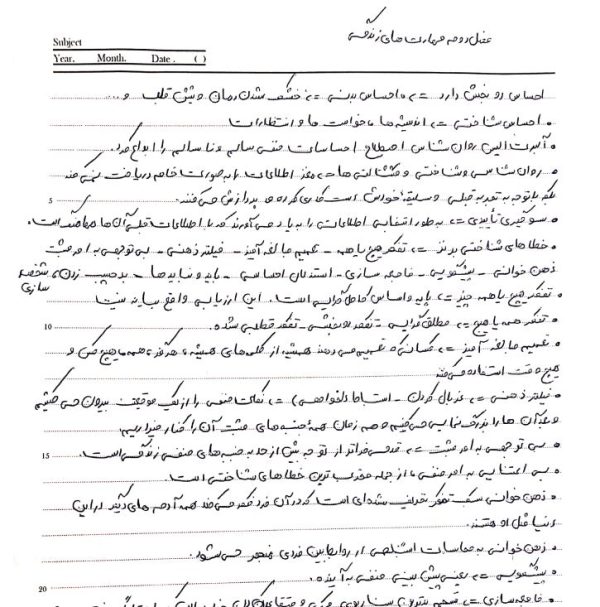 فصل دوم مهارت های زندگی
Subject
Year. Month. Date . ( )
احساس دو بخش دارد => ۱- احساس بدنی => خشک شدن دهان و تپش قلب و...
• احساس شناختی => اندیشه ها، خواست ها و انتظارات
• آلبرت الیس روان شناس اصطلاح احساسات منفی سالم و ناسالم را ابداع کرد.
• روان شناسی و شناختی و ها => مغز اطلاعات را به صورت خام دریافت نمی کند
بلکه با توجه به تجربه قبلی و سلیقه خودش است کدی کرده و پردازش می کند.
5
• سوگیری تأییدی => به طور انتخابی اطلاعاتی را به یاد می آورند که با اطلاعات قبلی آن ها هماهنگ است.
• خطاهای شناختی => تفکر هیچ یا همه - تعمیم مبالغه آمیز - فیلتر ذهنی - بی توجهی به امر مثبت
ذهن خوانی - پیشگویی - فاجعه سازی - استدلال احساسی - باید و نبایدها - برچسب زدن و شخصی
سازی
• تفکر هیچ یا همه چیز => پایه و اساس کامل گرایی است. این ارزیابی واقع بینانه نیست
10
• تفکر همه یا هیچ => مطلق گرایی - تفکر دو بخشی - تفکر قطبی شده.
• تعمیم مبالغه آمیز => کسانی که تعمیم می دهند همیشه از کلمه های همیشه، هرگز، همه، هیچ کس و
هیچ وقت استفاده می کنند
• فیلتر ذهنی => غربال کردن - (دلخواهی) => نکات منفی را از یک موقعیت بیرون می کشیم
و آن ها را بزرگ نمایی می کنیم و هم زمان همه جنبه های مثبت آن را کنار میگذاریم.
15
• بی توجهی به امر مثبت => قدمی فراتر از توجه بیش از حد به جنبه های منفی زندگی است.
• بی اعتنایی به امر منفی، از جمله مخرب ترین خطاهای شناختی است.
• ذهن خوانی سبک تفکر تحریف شده ای است که در آن فرد فکر می کند همه آدم های دیگر در این
دنیا مثل او هستند.
• ذهن خوانی به محاسبات اشتباهی از روابط بین فردی منجر می شود.
• پیشگویی => یعنی پیش بینی منفی به آینده.
20
• فاجعه سازی =>